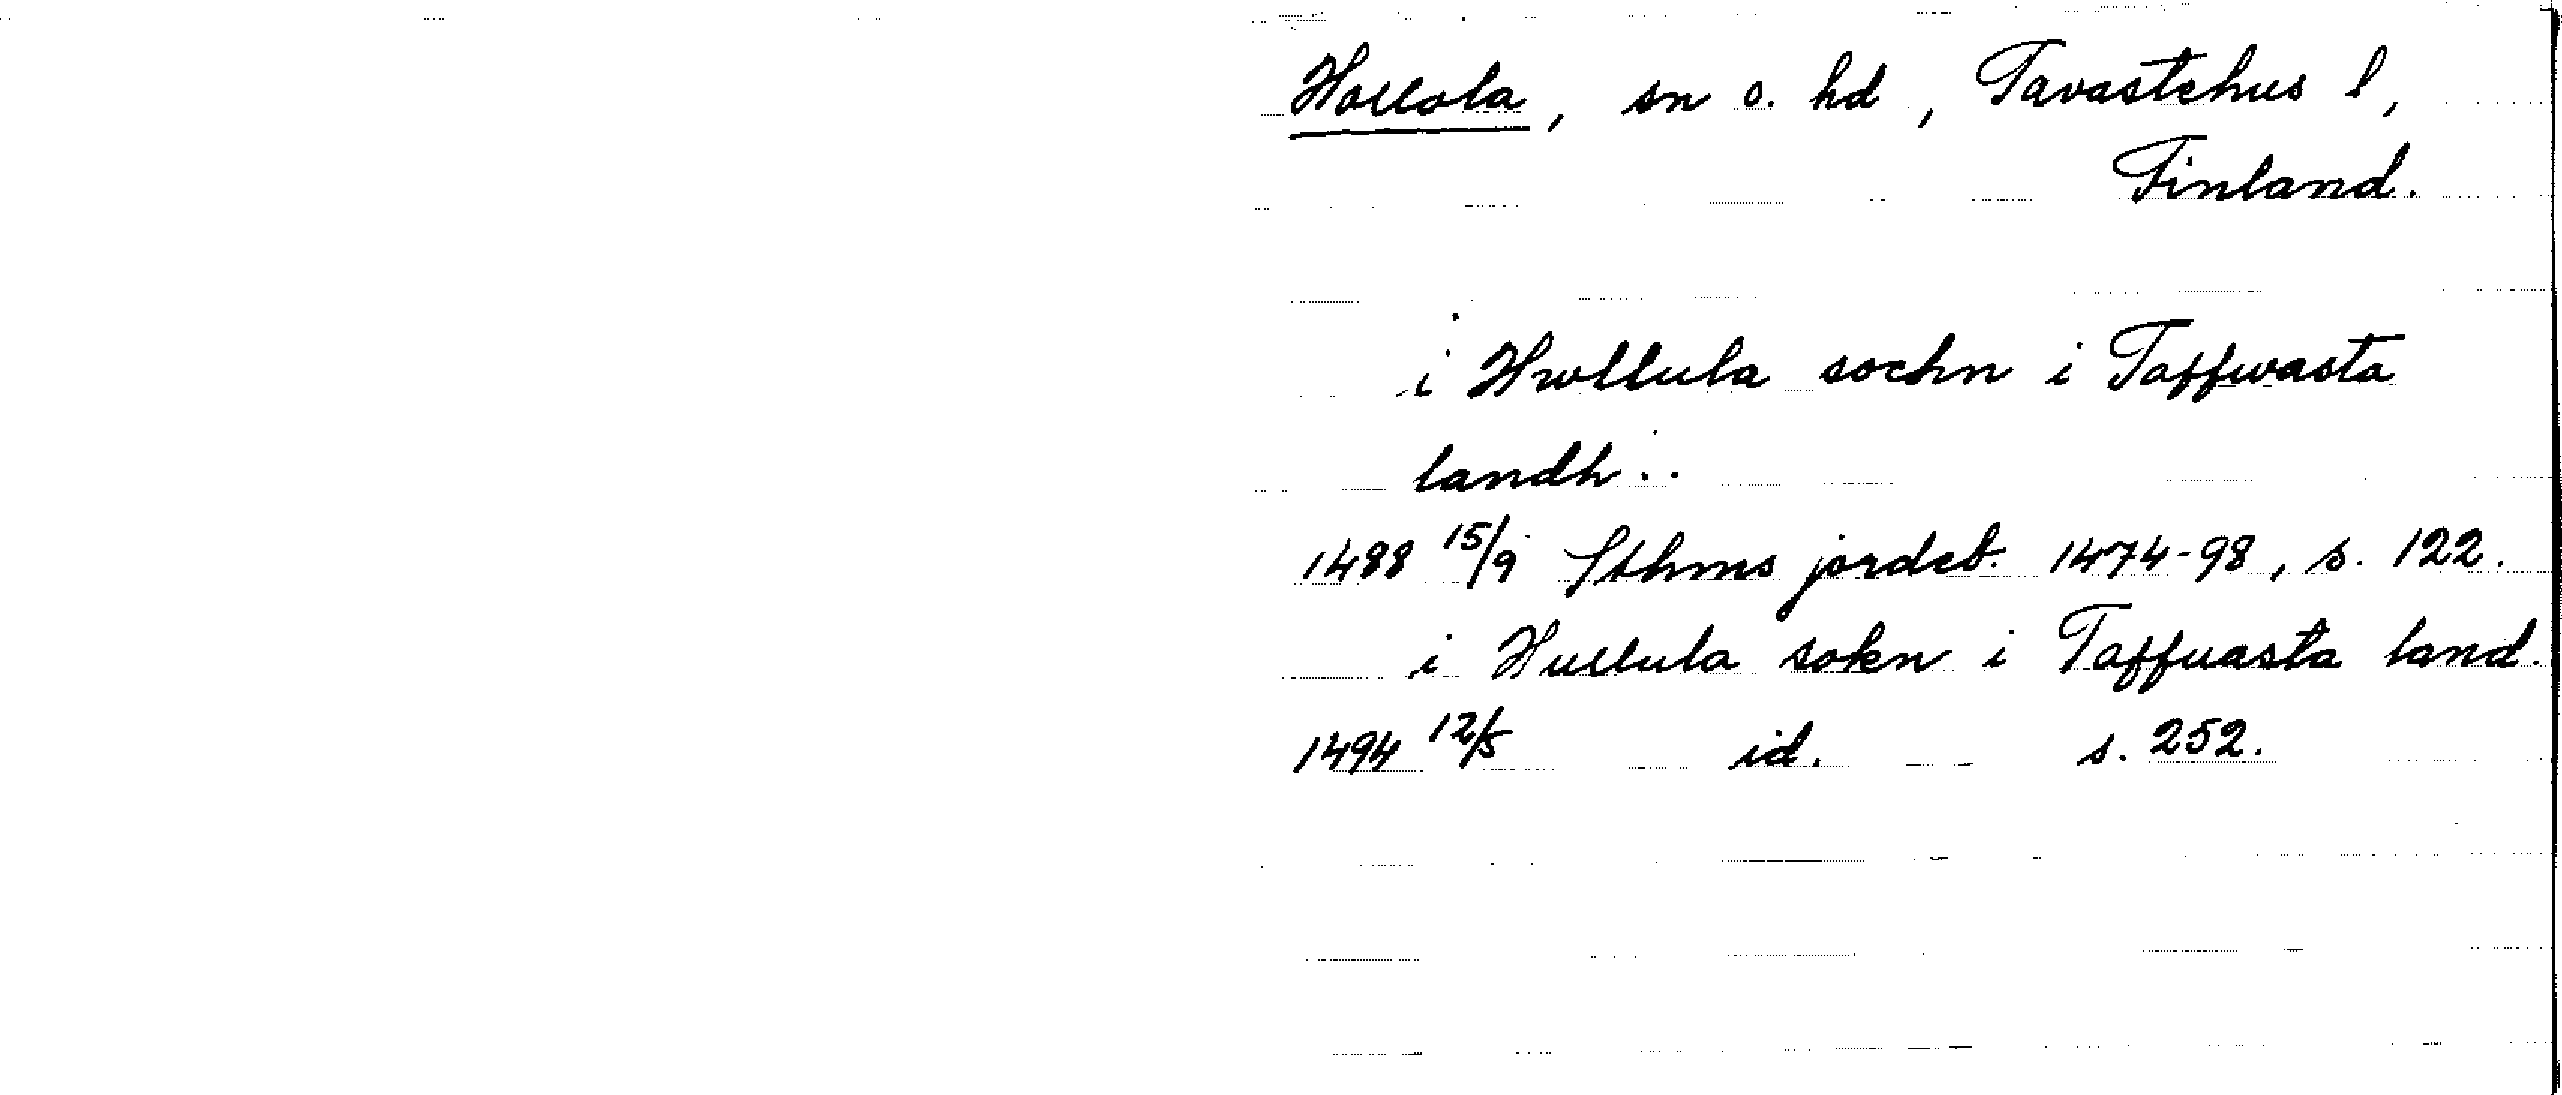 Hollola, sn o. hd, Tavastehus l,
Finland.
i Hwllula sochn i Taffwasta
landh..
1488 15/9 Sthms jordeb. 1474-98, s. 122.
i Hullula sokn i Taffuasta land.
1494 12/5 id. s. 252.